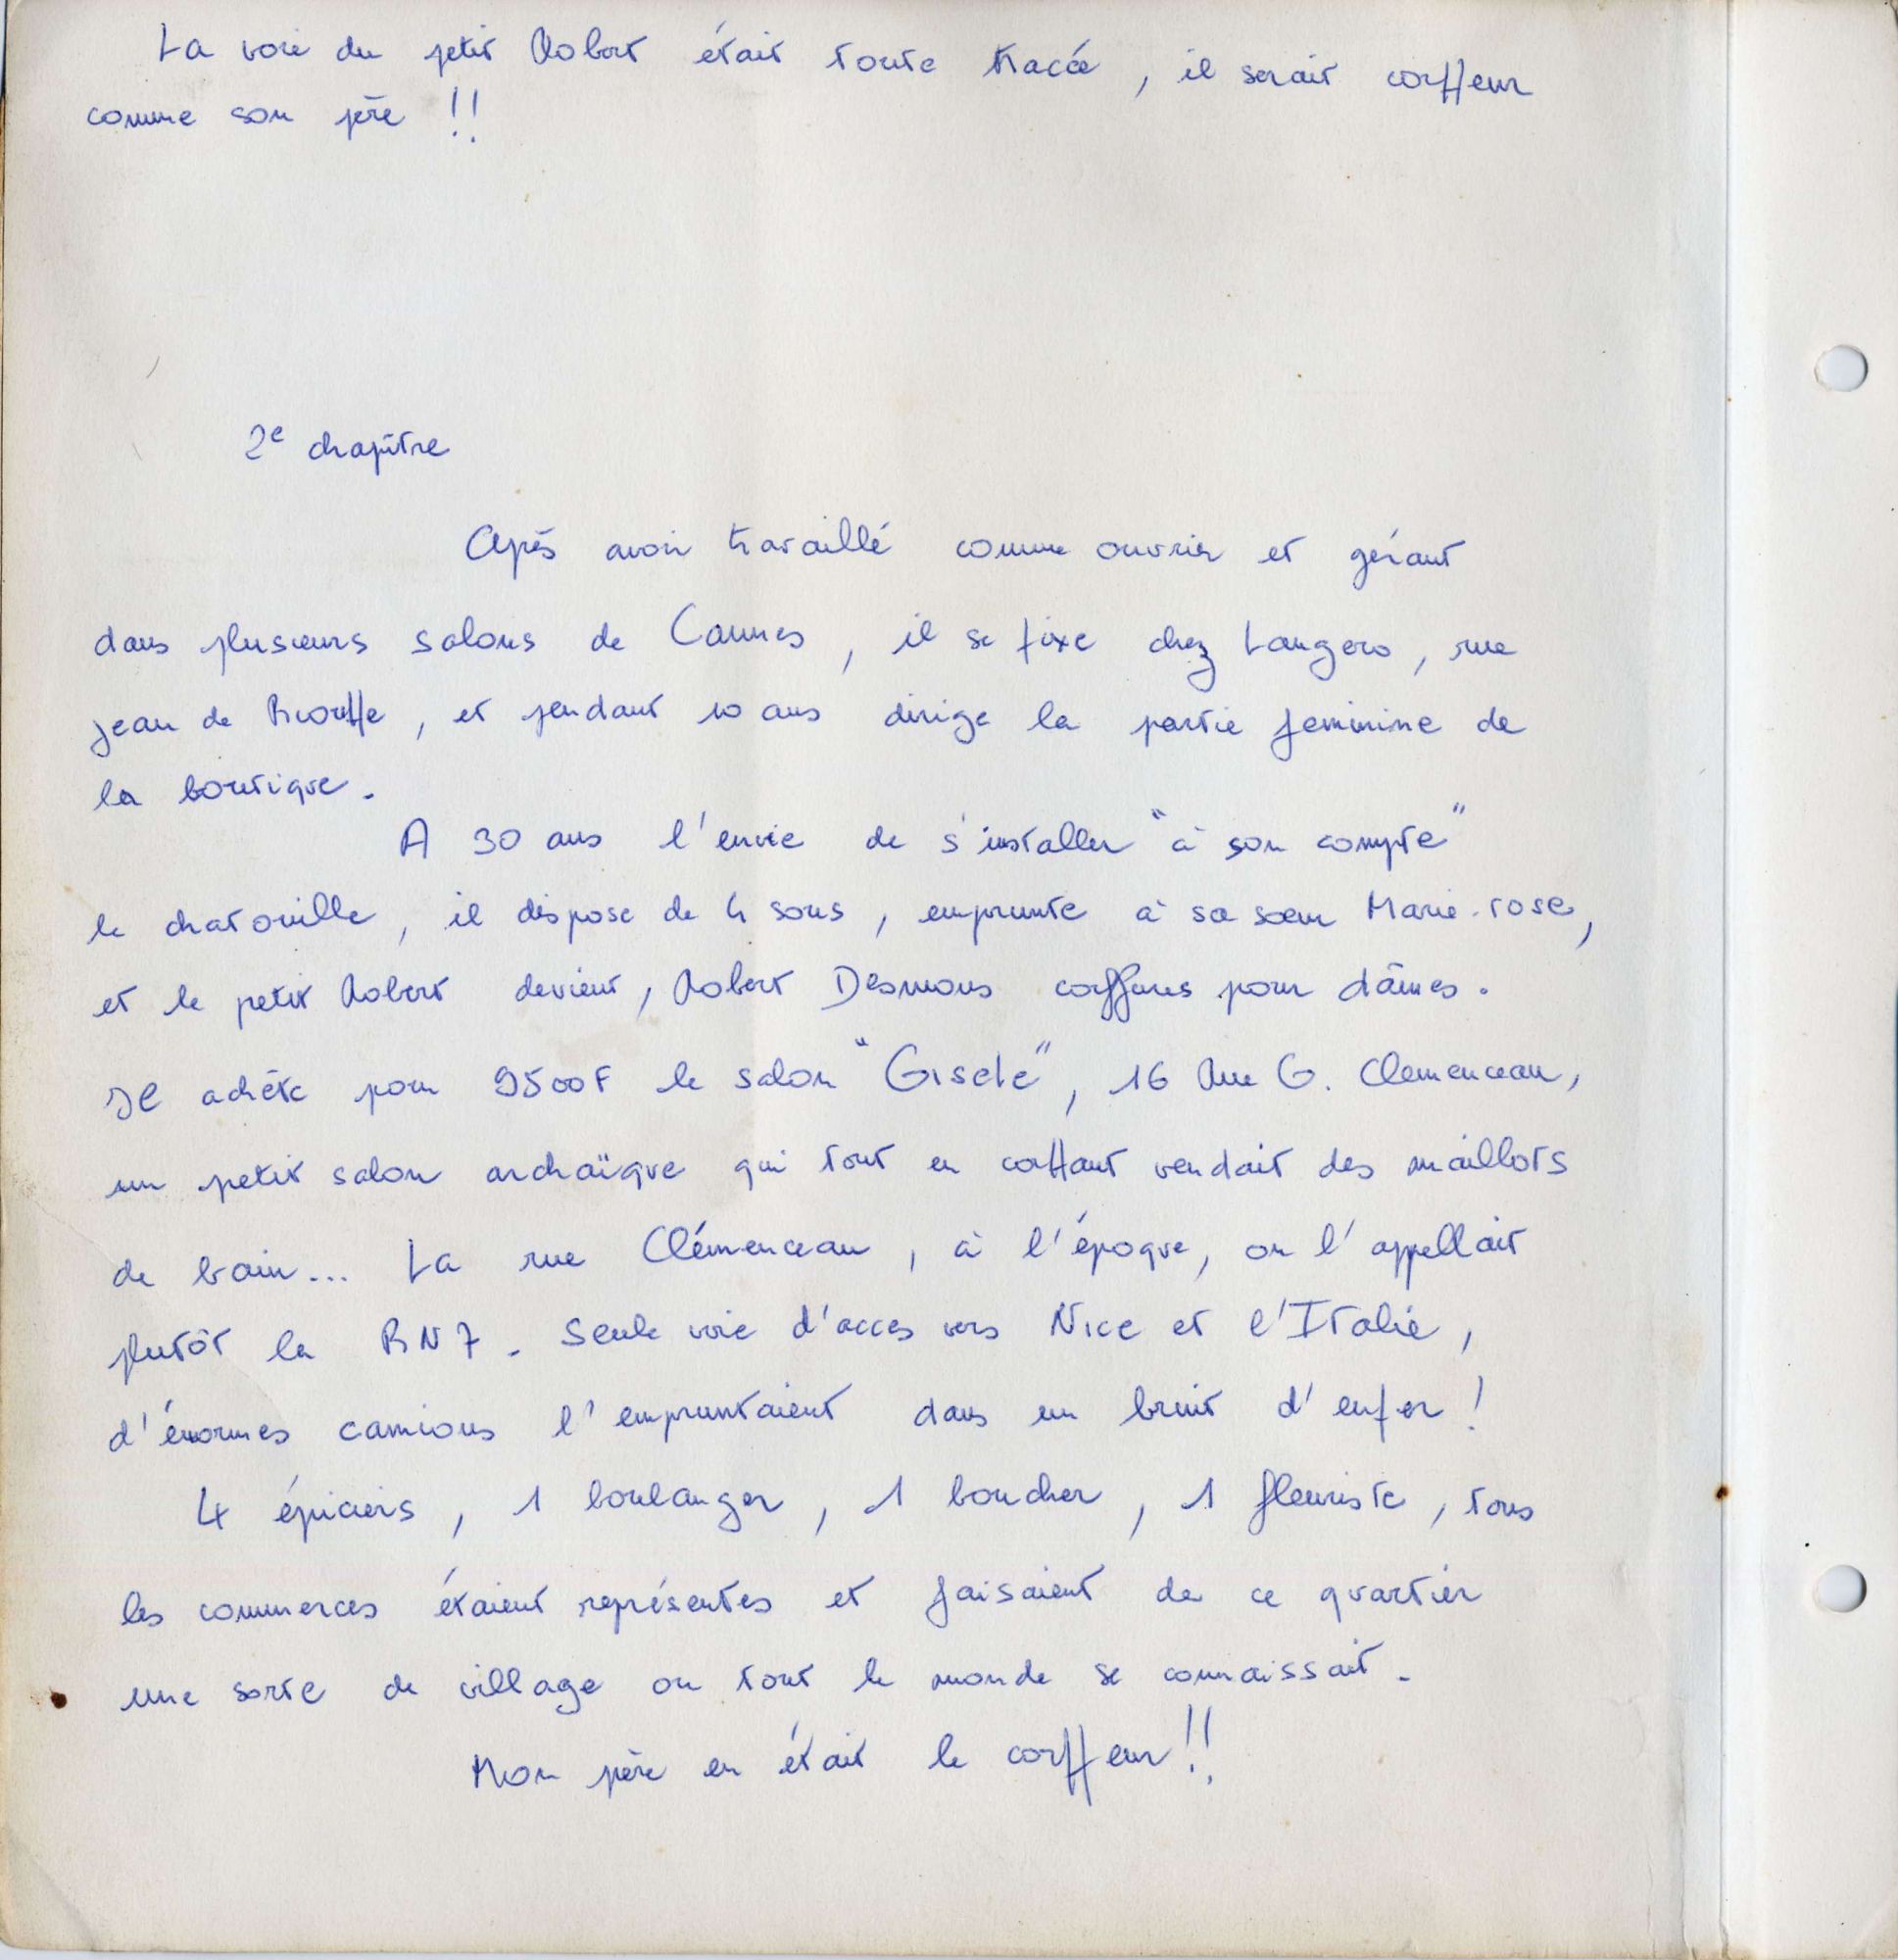 La voie du petit Robert était toute tracée, il serait coiffeur
comme son père !!
2e chapître
Après avoir travaillé comme ouvrier et gérant
dans plusieurs salons de Cannes, il se fixe chez Langero, rue
Jean de Riouffe, et pendant 10 ans dirige la partie feminine de
la boutique.
A 30 ans l'envie de s'installer "à son compte"
le chatouille, il dispose de 4 sous, emprunte à sa sœur Marie-rose,
et le petit Robert devient, Robert Desmons coiffures pour dâmes.
Il achète pour 9500F le salon "Gisele", 16 Rue G. Clemenceau,
un petit salon archaïque qui tout en coiffant vendait des maillots
de bain... La rue Clémenceau, à l'époque, on l'appellait
plutôt la RN7. Seule voie d'acces vers Nice et l'Italie,
d'énormes camions l'empruntaient dans un bruit d'enfer !
4 épiciers, 1 boulanger, 1 boucher, 1 fleuriste, tous
les commerces étaient représentes et faisaient de ce quartier
une sorte de village ou tout le monde se connaissait.
Mon père en était le coiffeur !!